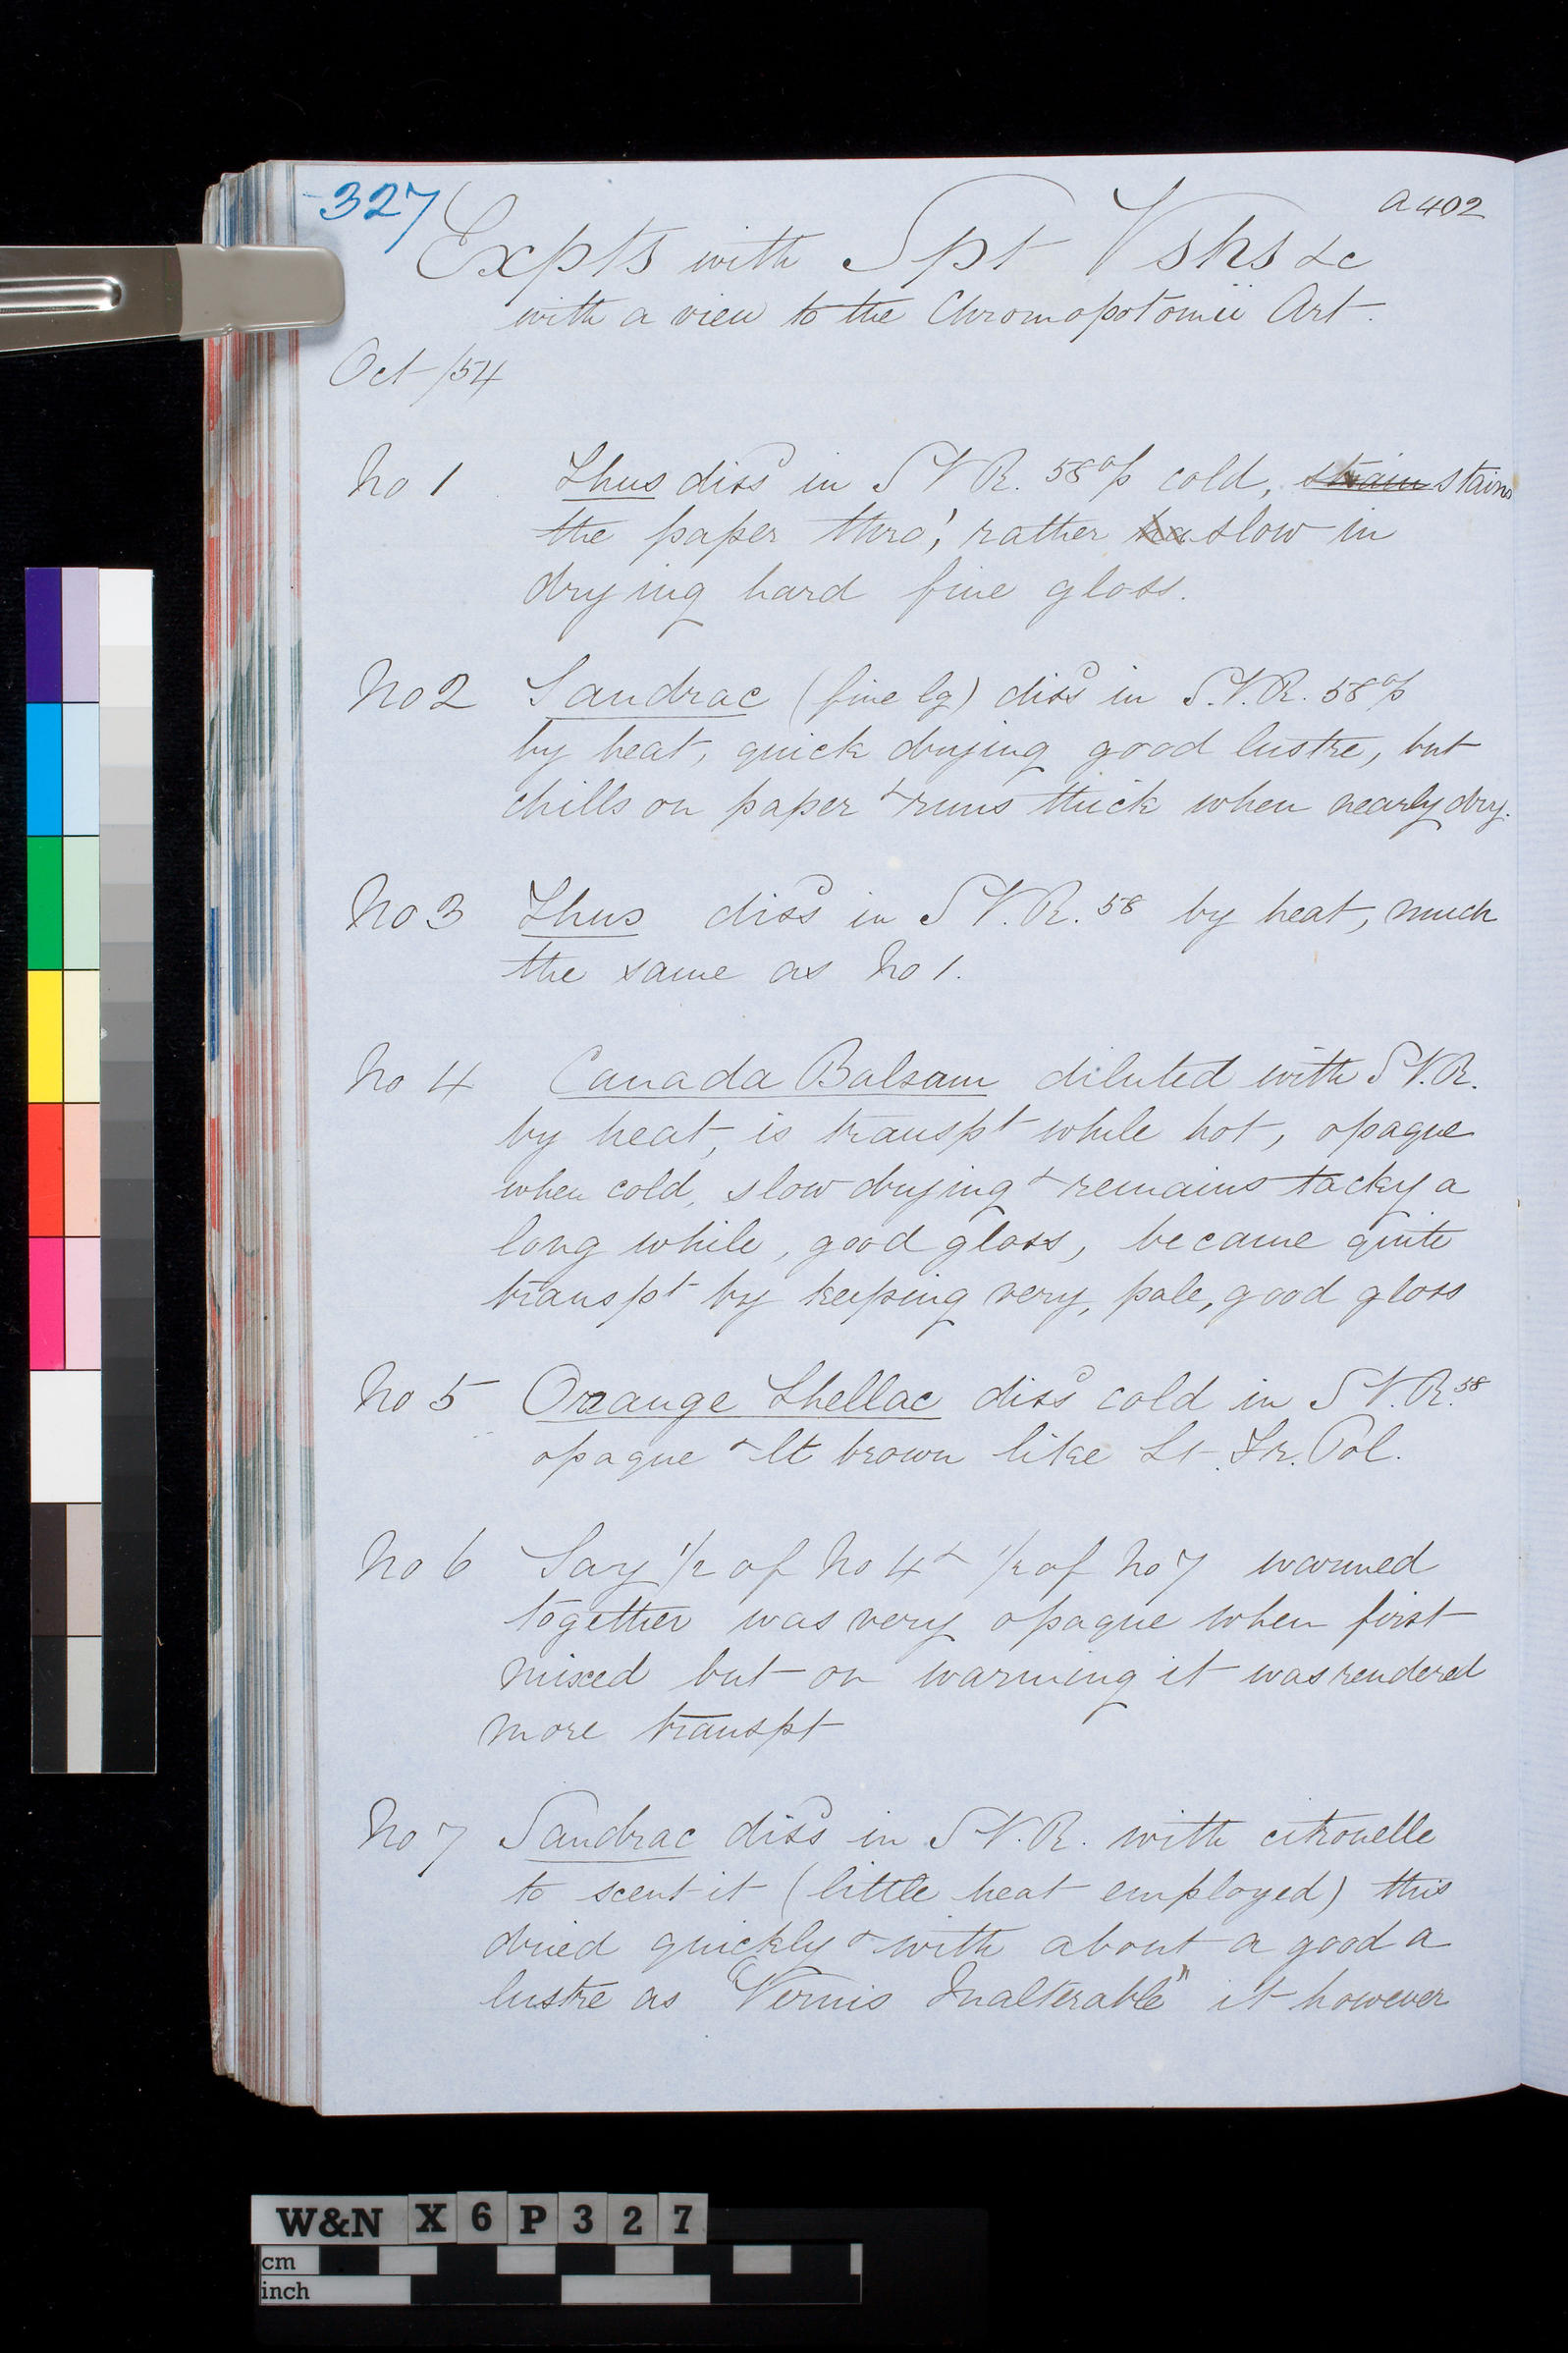 327
a 402
Expts with Spt Vshs &c
with a view to the Chromopotomii Art.
Oct /54
No 1 Thus dissd in S V R. 58 o/p cold, strain stains
the paper thro', rather ha slow in
drying hard fine gloss.
No 2 Sandrac (fine lg) dissd in S.V.R. 58 o/p
by heat, quick drying good lustre, but
chills on paper & runs thick when nearly dry.
No 3 Thus dissd in S V.R. 58 by heat, much
the same as No 1.
No 4 Canada Balsam diluted with S V.R.
by heat, is transpt while hot, opaque
when cold, slow drying & remains tacky a
long while, good gloss, became quite
transpt by keeping very, pale, good gloss
No 5 Orange Shellac dissd cold in S V.R. 58
opaque & lt brown like Lt. Fr. Pol.
No 6 Say 1/2 of No 4 & 1/2 of No 7 warmed
together was very opaque when first
mixed but on warming it was rendered
more transpt
No 7 Sandrac dissd in S V.R. with citronelle
to scent it (little heat employed) this
dried quickly & with about a good a
lustre as "Vernis Inalterable" it however
W&N X6P327
cm
inch